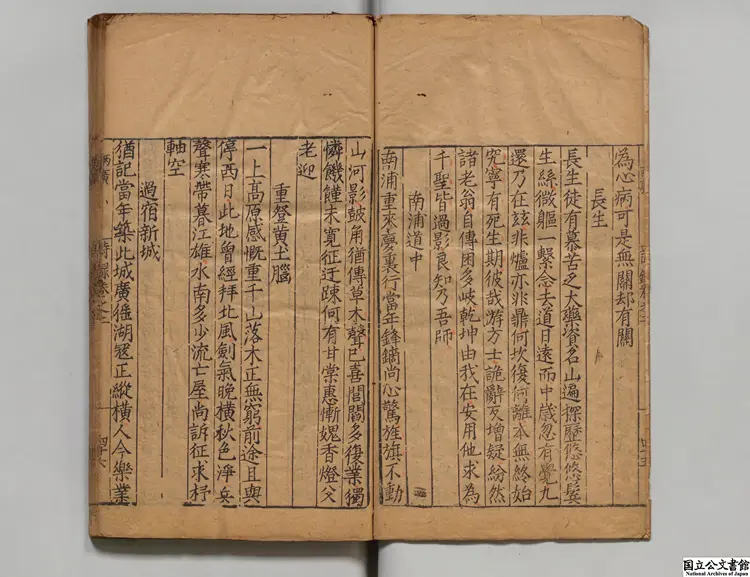 為心病可是無關却有關
長生
長生徒有慕苦乏大藥資名山遍探歷悠悠鬂
生絲微軀一繫念去道日遠而中歲忽有覺九
還乃在兹非爐亦非鼎何坎復何離本無終始
究寧有死生期彼哉游方士詭辭反增疑紛然
諸老翁自傳困多岐乾坤由我在安用他求為
千聖皆過影良知乃吾師
南浦道中
南浦重來夢裏行當年鋒鏑尚心驚旌旗不動
山河影鼓角猶傳草木聲已喜閭閻多復業獨
憐饑饉未寬征迂疎何有甘棠惠慚媿香燈父
老迎
重登黃土腦
一上高原感慨重千山落木正無窮前途且與
停西日此地曾經拜北風劍氣晚橫秋色淨兵
聲寒帶暮江雄水南多少流亡屋尚訴征求杼
軸空
過宿新城
猶記當年築此城廣猺湖寇正縱橫人今樂業
国立公文書館
National Archives of Japan